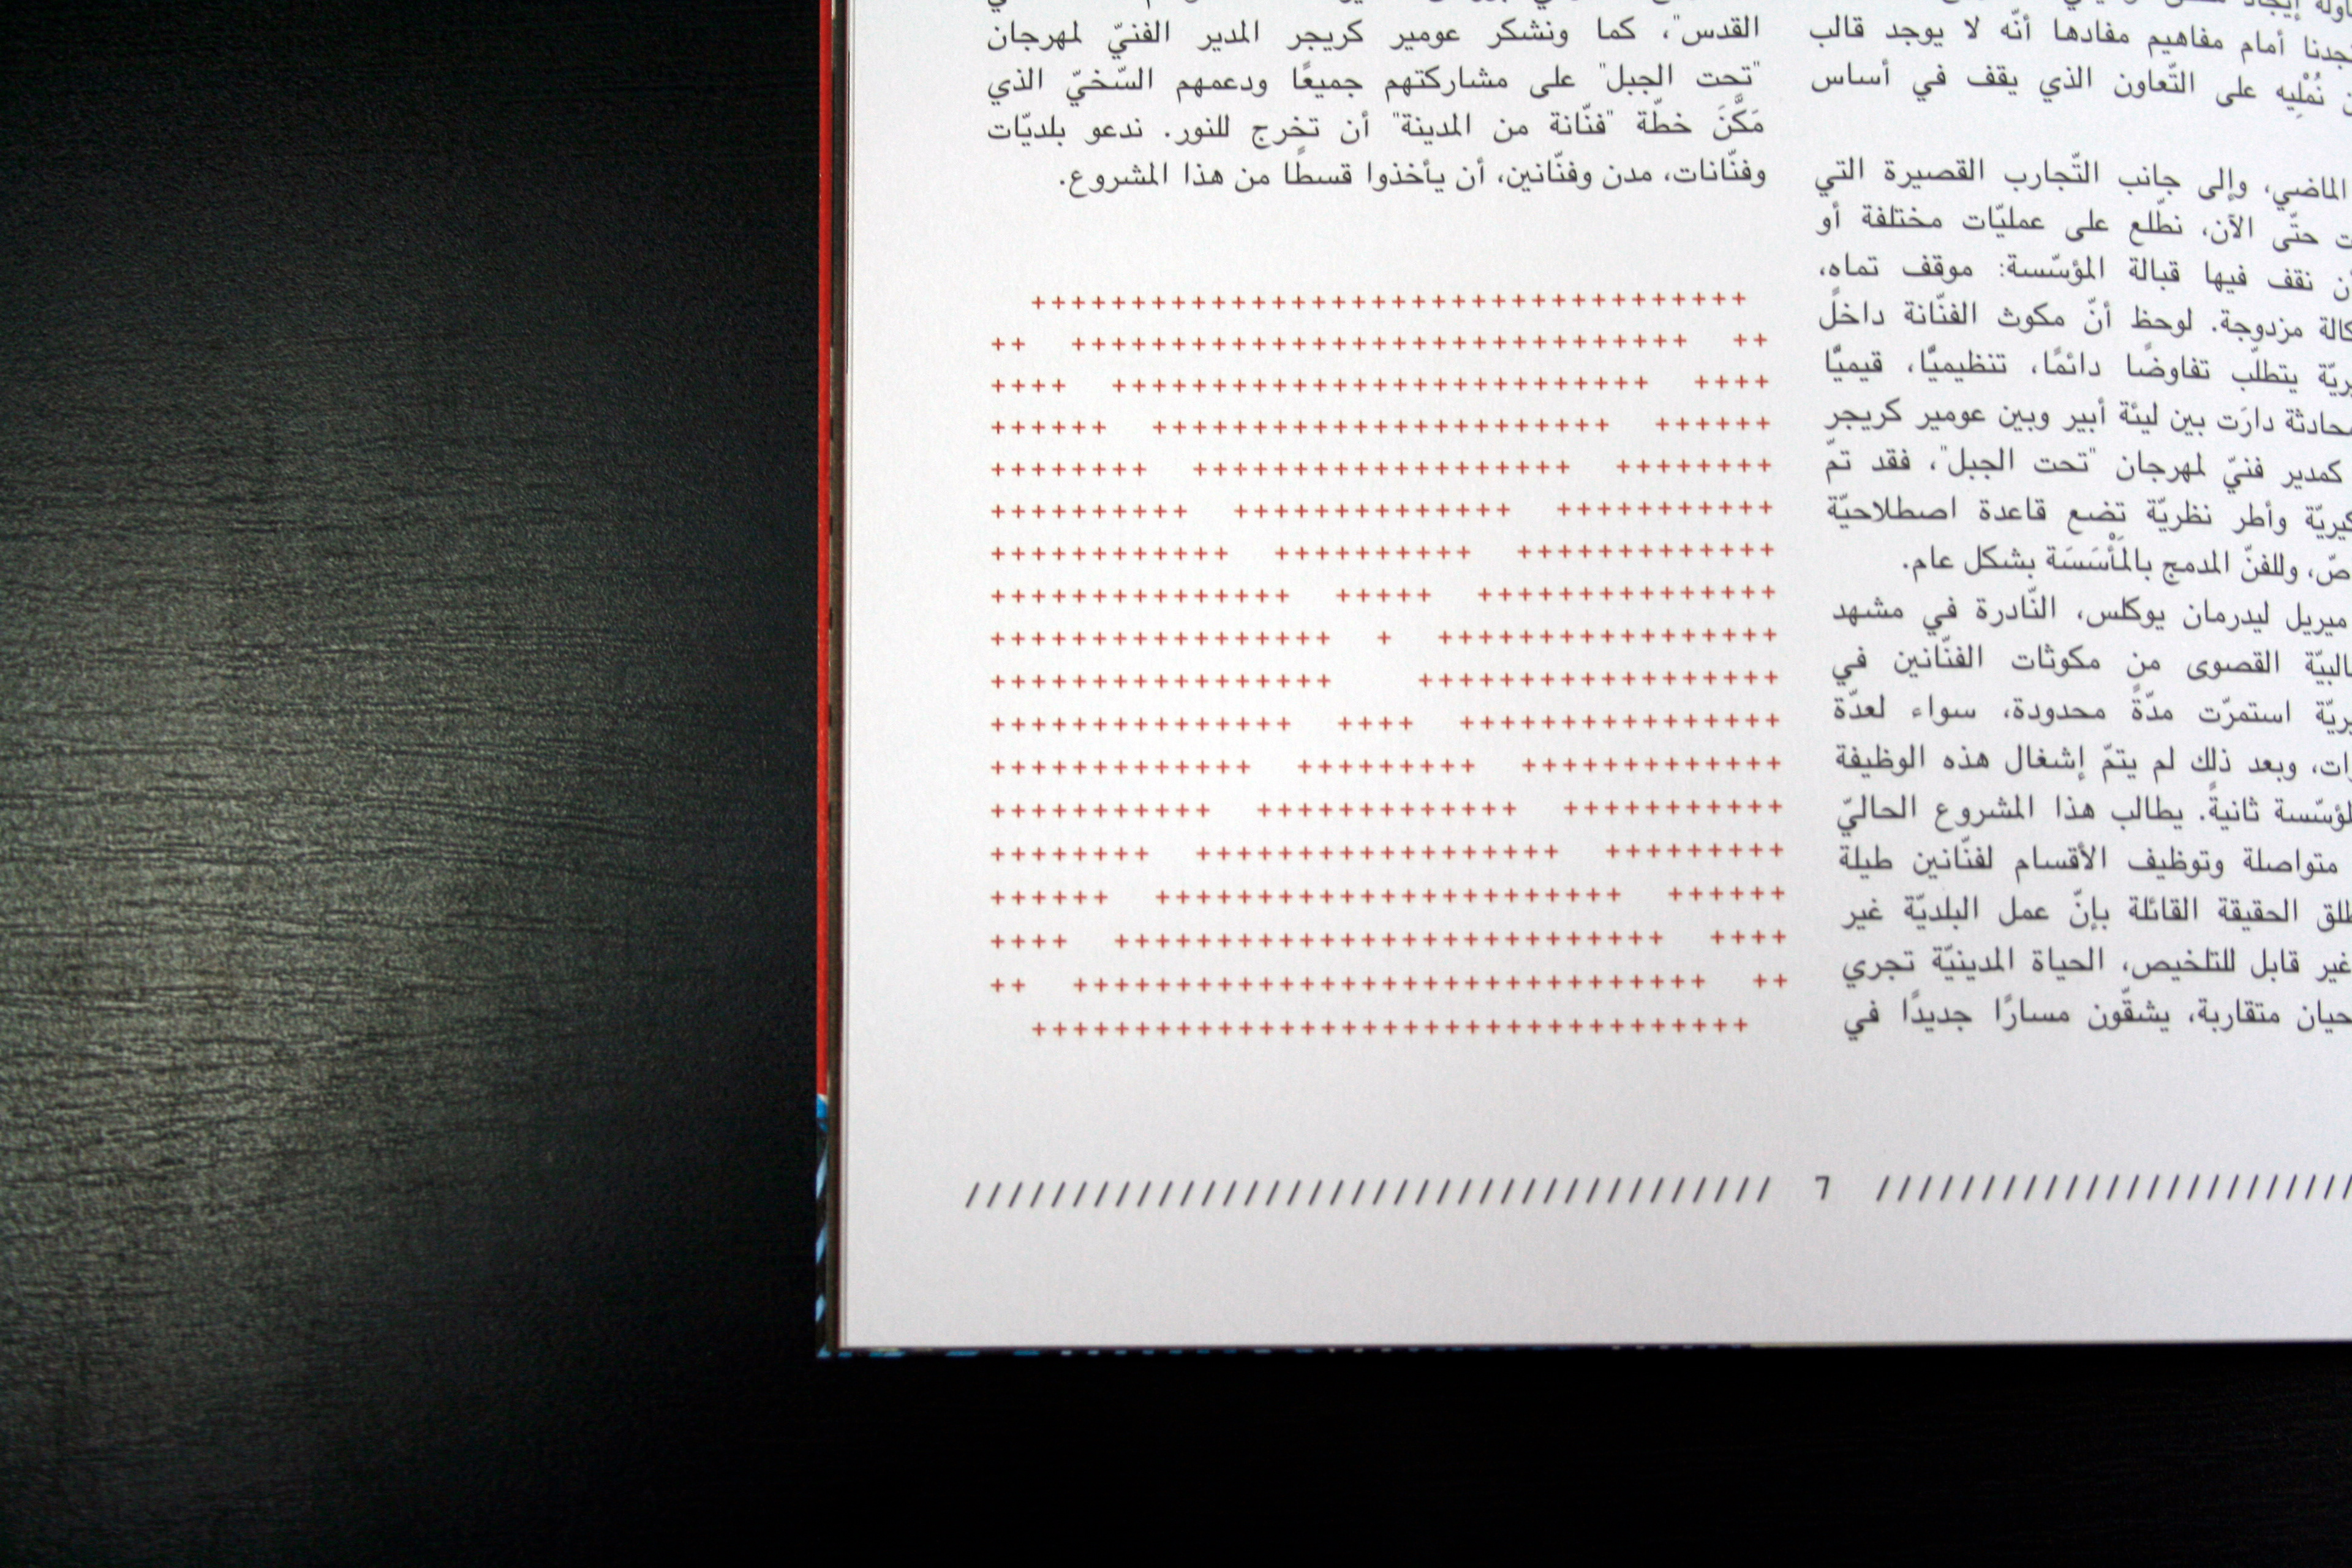 أمام مفاهيم مفادها أنّه لا يوجد قالب
نُمْلِيه على التّعاون الذي يقف في أساس
الماضي، وإلى جانب التّجارب القصيرة التي
حتّى الآن، نطّلع على عمليّات مختلفة أو
نقف فيها قبالة المؤسّسة: موقف تماه،
مزدوجة. لوحظ أنّ مكوث الفنّانة داخل
يتطلّب تفاوضًا دائمًا، تنظيميًّا، قيميًّا
دارَت بين ليئة أبير وبين عومير كريجر
كمدير فنيّ لمهرجان "تحت الجبل"، فقد تمّ
وأطر نظريّة تضع قاعدة اصطلاحيّة
وللفنّ المدمج بالمَأْسَسَة بشكل عام.
ميريل ليدرمان يوكلس، النّادرة في مشهد
القصوى من مكوثات الفنّانين في
استمرّت مدّةً محدودة، سواء لعدّة
وبعد ذلك لم يتمّ إشغال هذه الوظيفة
ثانيةً. يطالب هذا المشروع الحاليّ
متواصلة وتوظيف الأقسام لفنّانين طيلة
الحقيقة القائلة بإنّ عمل البلديّة غير
غير قابل للتلخيص، الحياة المدينيّة تجري
متقاربة، يشقّون مسارًا جديدًا في
القدس"، كما ونشكر عومير كريجر المدير الفنيّ لمهرجان
"تحت الجبل" على مشاركتهم جميعًا ودعمهم السّخيّ الذي
مَكَّنَ خطّة "فنّانة من المدينة" أن تخرج للنور. ندعو بلديّات
وفنّانات، مدن وفنّانين، أن يأخذوا قسطًا من هذا المشروع.
٦